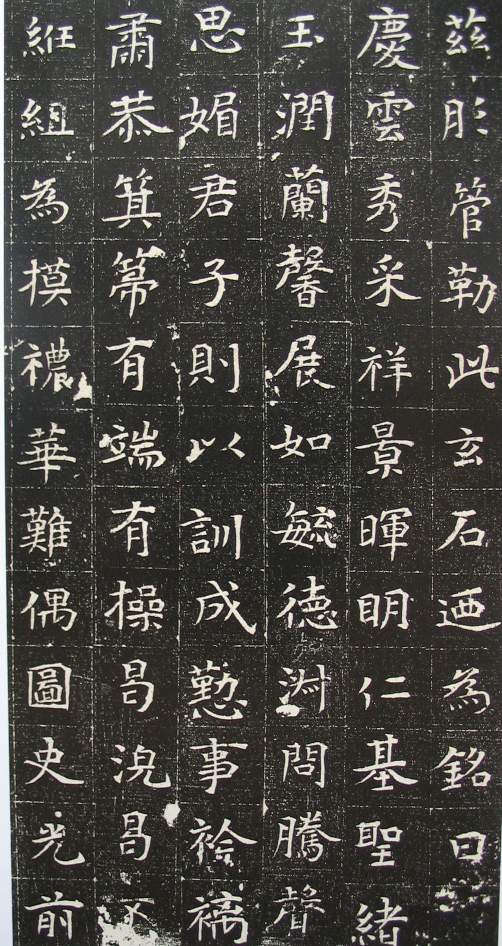 茲彤管勒此玄石迺為銘曰
慶雲秀采祥景暉明仁基聖緒
玉潤蘭馨展如毓德淑問騰聲
思媚君子則以訓成懃事袷褵
肅恭箕箒有端有操曷浼曷
紝組為模禯華難偶圖史光前